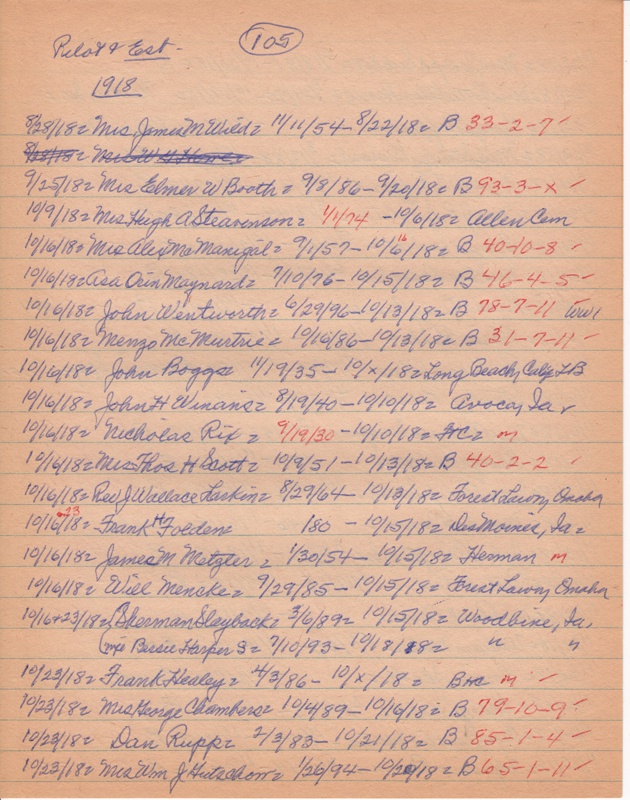 Pilot & Est -
105
1918
8/28/18 = Mrs. James M Wild = 11/11/54 - 8/22/18 = B 33-2-7 ✓
8/28/18 = Mrs W H
9/25/18 = Mrs Elmer W Booth = 9/8/86 - 9/20/18 = B 93-3-x ✓
10/9/18 = Mrs Hugh A Steavenson = 1/1/74 - 10/6/18 = Allen Cem
10/16/18 = Mrs Alex McManigal = 9/1/57 - 10/6/18 = B 40-10-8 ✓
10/16/18 = Asa Orin Maynard = 7/10/76 - 10/15/18 = B 46-4-5 ✓
10/16/18 = John Wentworth = 6/29/96 - 10/13/18 = B 78-7-11 WW1
10/16/18 = Menzo McMurtrie = 10/16/86 - 10/13/18 = B 31-7-11 ✓
10/16/18 = John Boggs = 11/19/35 - 10/x/18 = Long Beach, LB
10/16/18 = John H Winans = 8/19/40 - 10/10/18 = Avoca, Ia ✓
10/16/18 = Nicholas Rix = 9/19/30 - 10/10/18 = HC = m
10/16/18 = Mrs Thos H Scott = 10/9/51 - 10/13/18 = B 40-2-2 ✓
10/16/18 = Rev J Wallace Larkin = 8/29/64 - 10/13/18 = Forest Lawn, Omaha
10/16/18 = 23 Frank H Folden = 180 - 10/15/18 = Des Moines, Ia =
10/16/18 = James M Metzler = 1/30/54 - 10/15/18 = Herman m
10/16/18 = Will Mencke = 9/29/85 - 10/15/18 = Forest Lawn, Omaha
10/16+23/18 = (Sherman Slayback = 3/6/89 = 10/15/18 = Woodbine, Ia,
(Mrs Bessie Harper S = 7/10/93 - 10/18/18 = " "
10/23/18 = Frank Healey = 2/3/86 - 10/x/18 = BHC m ✓
10/23/18 = Mrs George Chambers = 10/4/89 - 10/16/18 = B 79-10-9 ✓
10/23/18 = Dan Rupp = 2/3/83 - 10/21/18 = B 85-1-4 ✓
10/23/18 = Mrs Wm J Hutschow = 1/26/94 - 10/20/18 = B 65-1-11 ✓